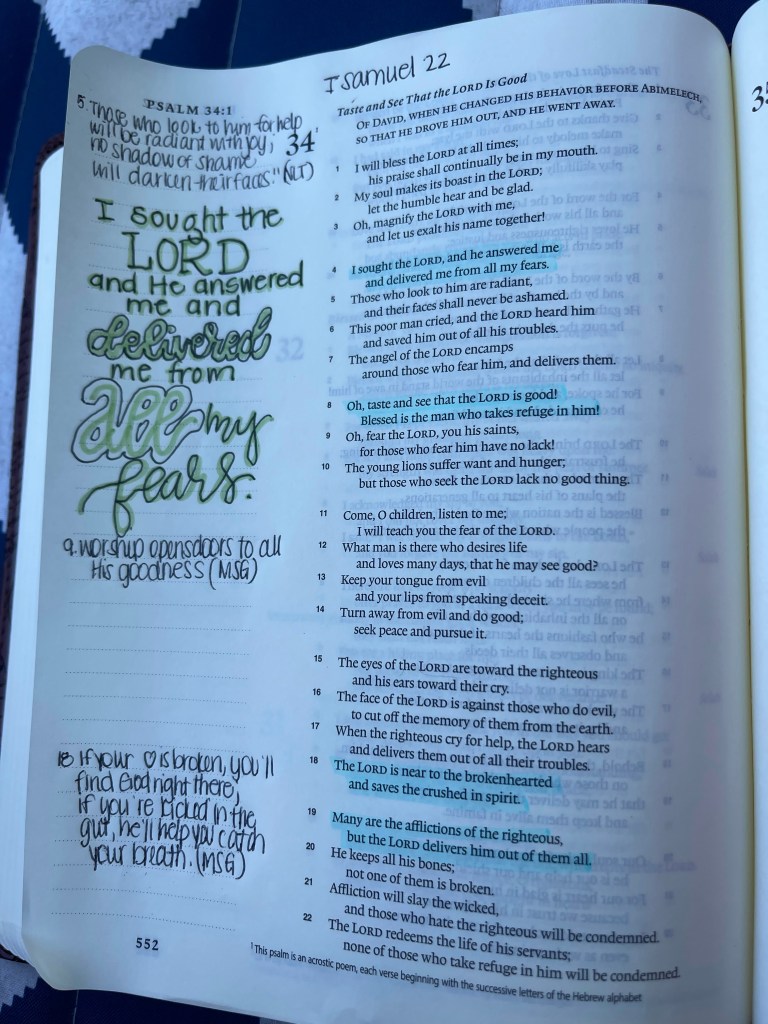 PSALM 34:1
5. "Those who look to him for help
will be radiant with joy;
no shadow of shame
will darken their faces." (NLT)
I sought the
LORD
and He answered
me and
delivered
me from
all my
fears.
9. worship opens doors to all
His goodness (MSG)
18 If your ♡ is broken, you'll
find God right there;
if you're kicked in the
gut, he'll help you catch
your breath. (MSG)
552
I Samuel 22
Taste and See That the LORD Is Good
34¹ OF DAVID, WHEN HE CHANGED HIS BEHAVIOR BEFORE ABIMELECH,
SO THAT HE DROVE HIM OUT, AND HE WENT AWAY.
1 I will bless the LORD at all times;
his praise shall continually be in my mouth.
2 My soul makes its boast in the LORD;
let the humble hear and be glad.
3 Oh, magnify the LORD with me,
and let us exalt his name together!
4 I sought the LORD, and he answered me
and delivered me from all my fears.
5 Those who look to him are radiant,
and their faces shall never be ashamed.
6 This poor man cried, and the LORD heard him
and saved him out of all his troubles.
7 The angel of the LORD encamps
around those who fear him, and delivers them.
8 Oh, taste and see that the LORD is good!
Blessed is the man who takes refuge in him!
9 Oh, fear the LORD, you his saints,
for those who fear him have no lack!
10 The young lions suffer want and hunger;
but those who seek the LORD lack no good thing.
11 Come, O children, listen to me;
I will teach you the fear of the LORD.
12 What man is there who desires life
and loves many days, that he may see good?
13 Keep your tongue from evil
and your lips from speaking deceit.
14 Turn away from evil and do good;
seek peace and pursue it.
15 The eyes of the LORD are toward the righteous
and his ears toward their cry.
16 The face of the LORD is against those who do evil,
to cut off the memory of them from the earth.
17 When the righteous cry for help, the LORD hears
and delivers them out of all their troubles.
18 The LORD is near to the brokenhearted
and saves the crushed in spirit.
19 Many are the afflictions of the righteous,
but the LORD delivers him out of them all.
20 He keeps all his bones;
not one of them is broken.
21 Affliction will slay the wicked,
and those who hate the righteous will be condemned.
22 The LORD redeems the life of his servants;
none of those who take refuge in him will be condemned.
¹ This psalm is an acrostic poem, each verse beginning with the successive letters of the Hebrew alphabet